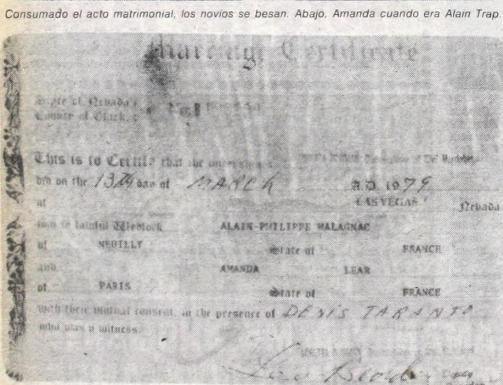 Consumado el acto matrimonial, los novios se besan. Abajo, Amanda cuando era Alain Trap.
Marriage Certificate
State of Nevada
County of Clark
This is to Certify that the undersigned
did on the 13th day of MARCH A.D. 1979
at LAS VEGAS Nevada
join in lawful Wedlock ALAIN-PHILIPPE MALAGNAC
of NEUILLY State of FRANCE
and AMANDA LEAR
of PARIS State of FRANCE
with their mutual consent, in the presence of DENIS TARANTO
who was a witness.